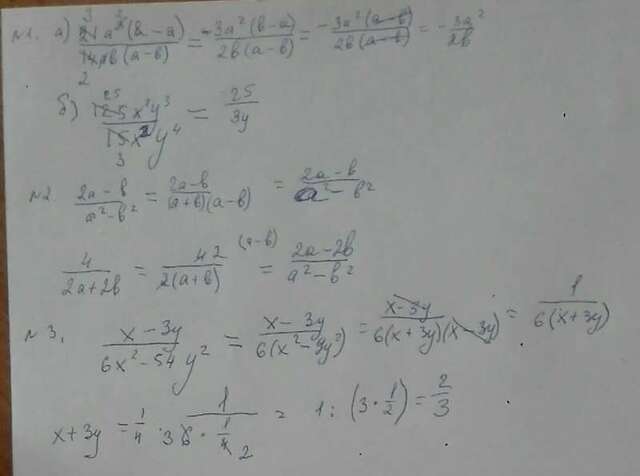 №1. а) 21a³(b-a)/14ab(a-b) = -3a²(b-a)/2b(a-b) = -3a²(a-b)/2b(a-b) = -3a²/2b
б) 125x²y³/15x²y⁴ = 25/3y
№2. 2a-b/a²-b² = 2a-b/(a+b)(a-b) = 2a-b/a²-b²
4/2a+2b = 42/2(a+b) (a-b) = 2a-2b/a²-b²
№3. x-3y/6x²-54y² = x-3y/6(x²-9y²) = x-3y/6(x+3y)(x-3y) = 1/6(x+3y)
x+3y = 1/4 . 1/36·1/4 2 = 1:(3·1/2) = 2/3